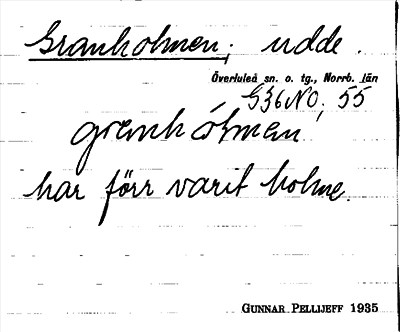 Granholmen, udde.
Överluleå sn. o. tg., Norrb. län
G36NO, 55
granhólmen
har förr varit holme.
GUNNAR PELLIJEFF 1935